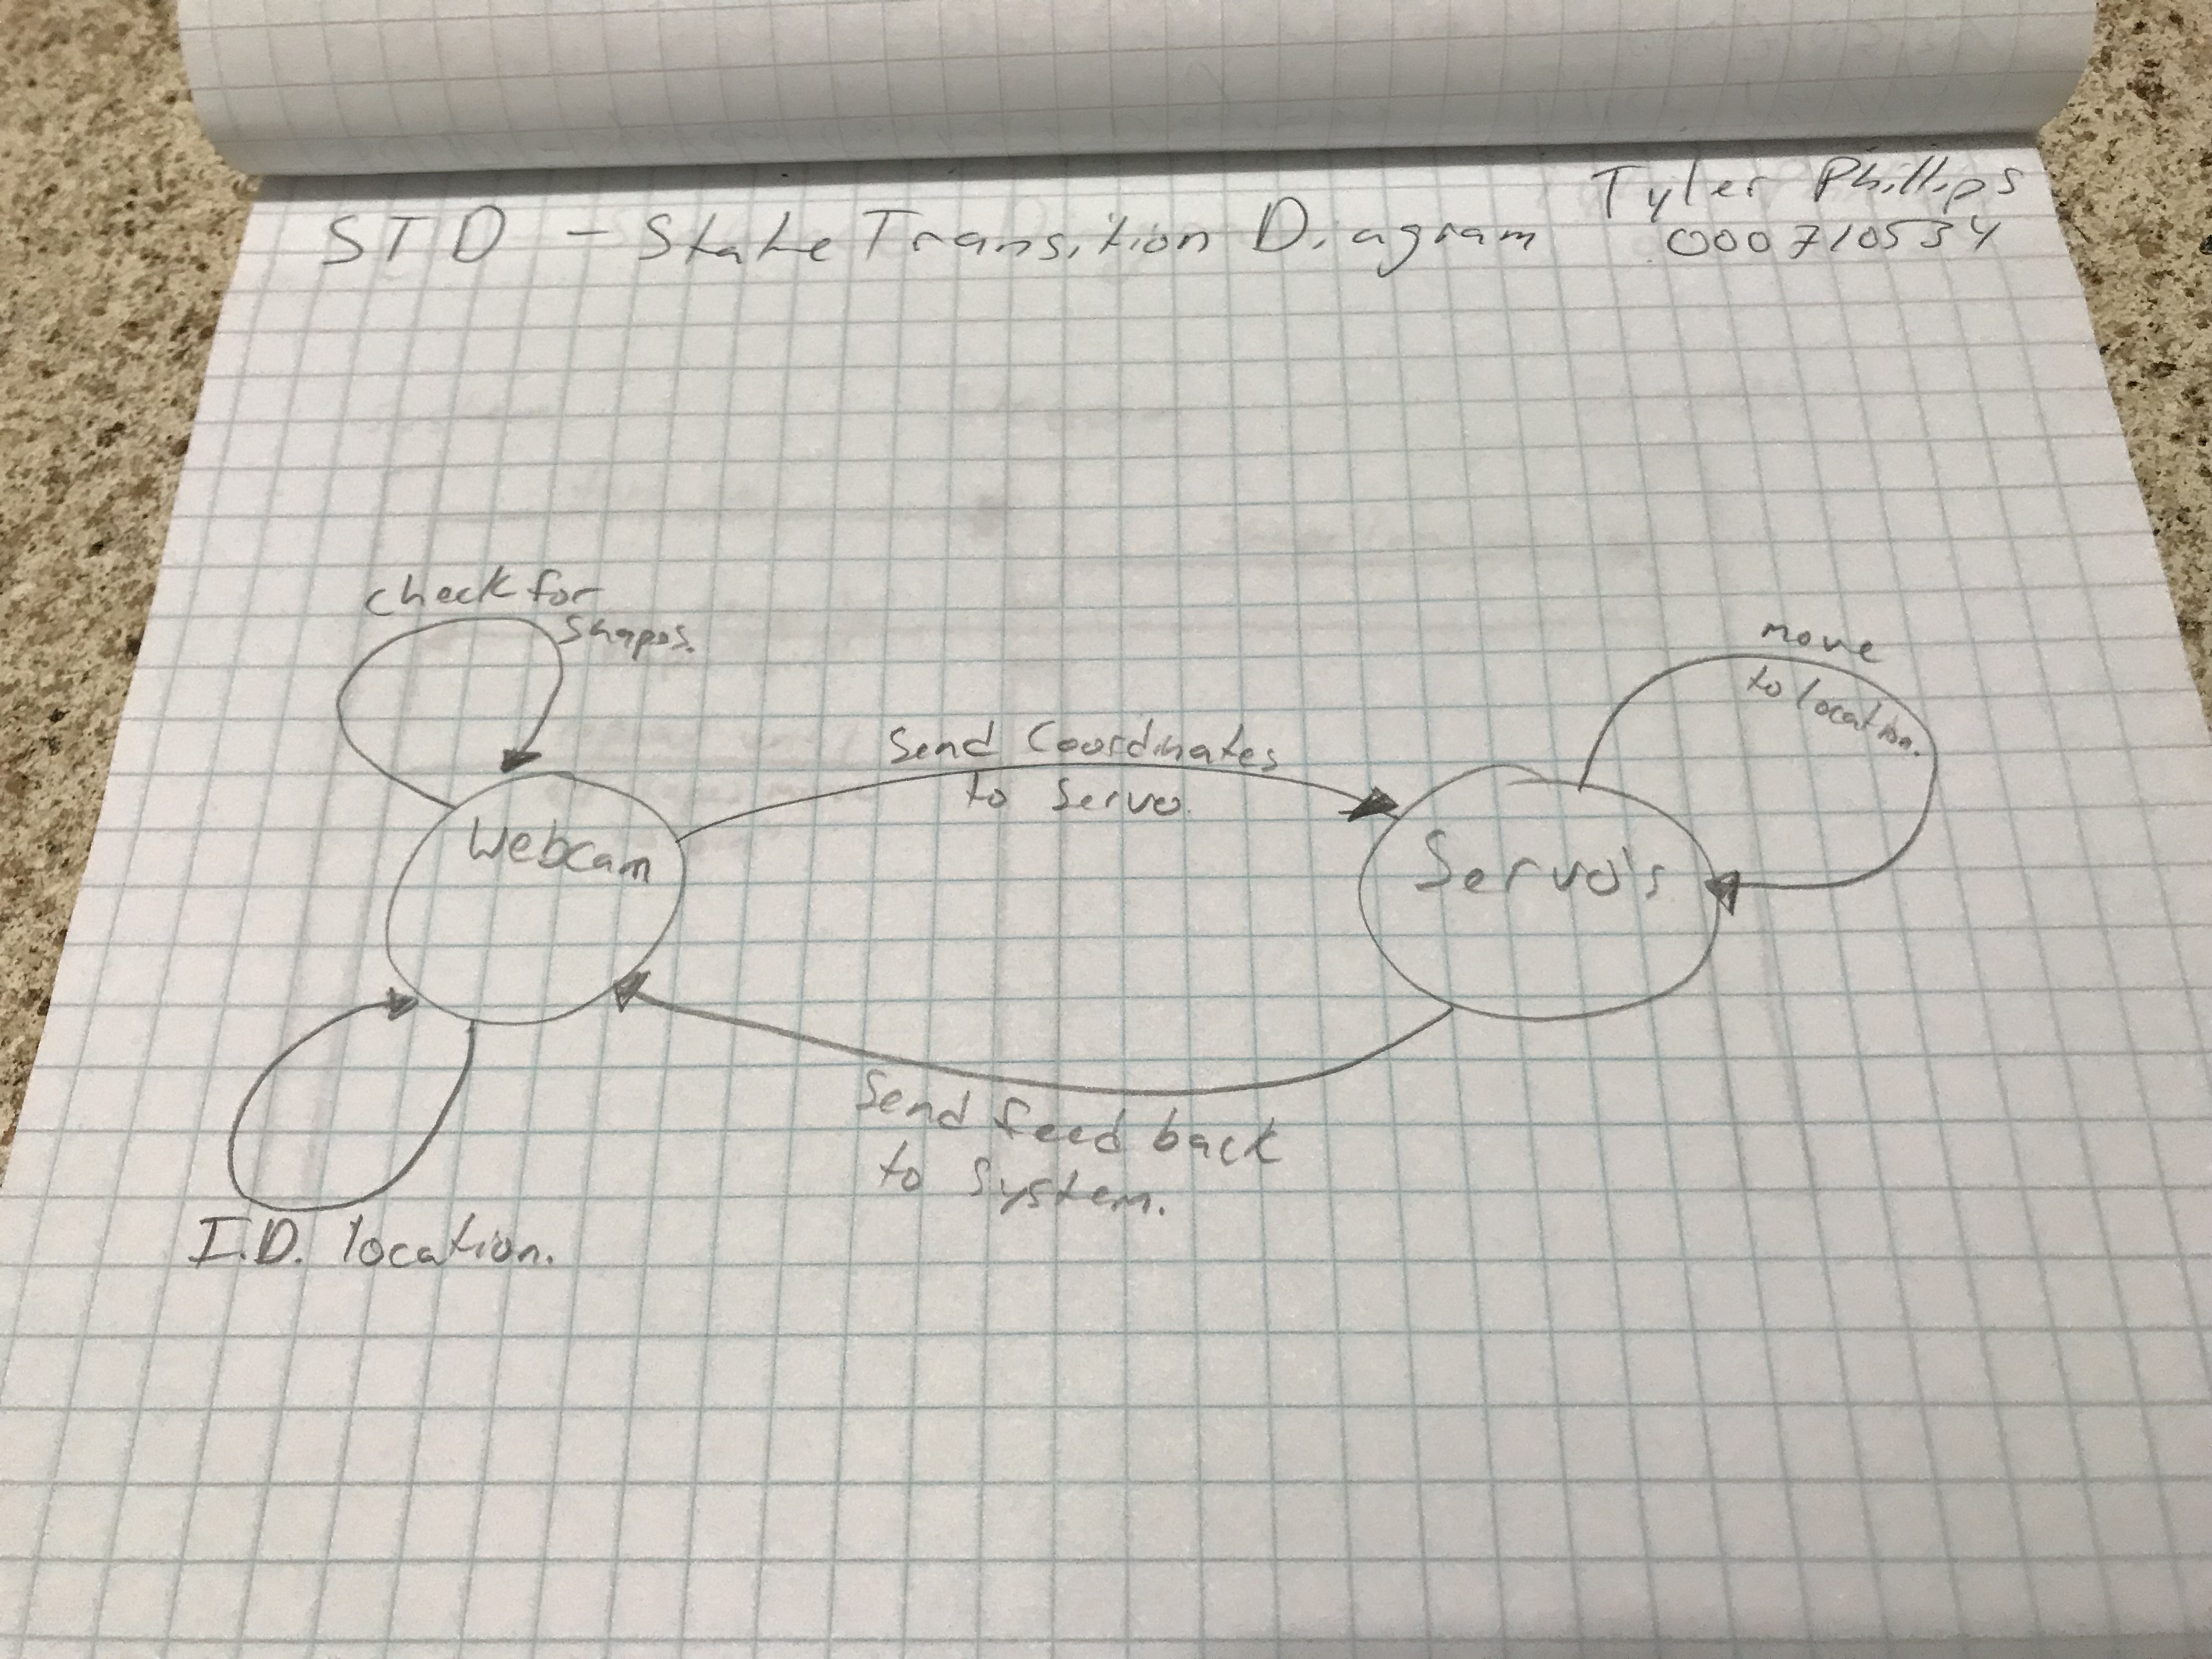 STD - State Transition Diagram
Tyler Phillips
000710554
Check for
Shapes.
Webcam
I.D. location.
Send Coordinates
to Servo.
Send feed back
to System.
Servo's
move
to location.